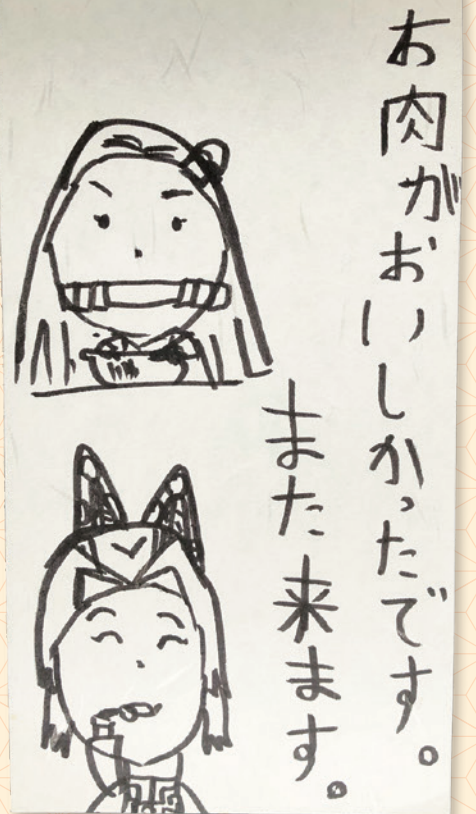 お肉がおいしかったです。
また来ます。